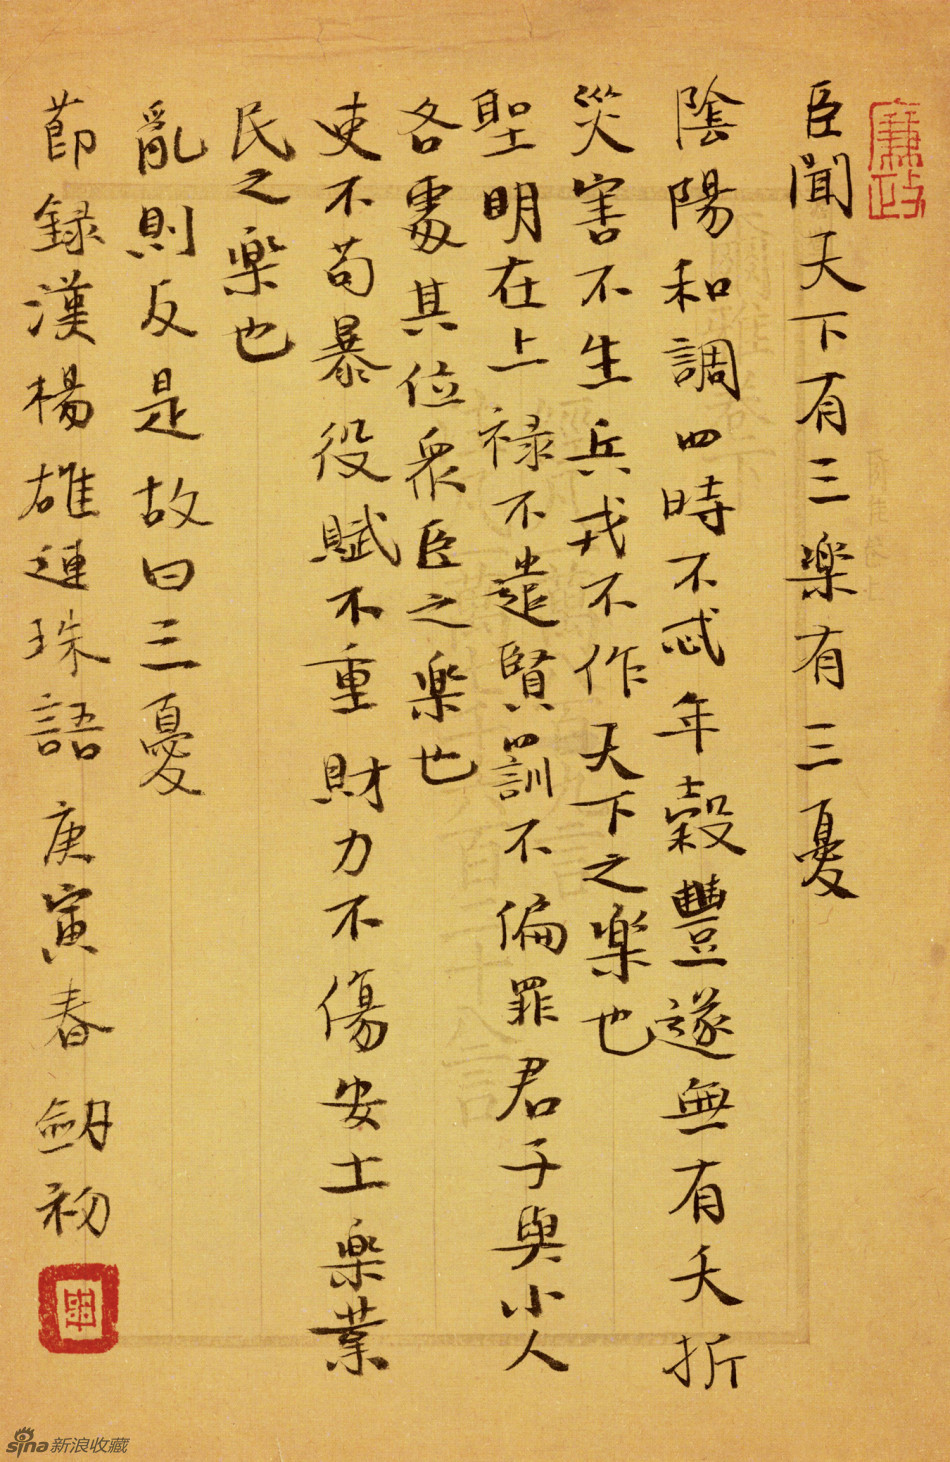 廉政
臣聞天下有三樂有三憂
陰陽和調四時不忒年穀豐遂無有夭折
災害不生兵戎不作天下之樂也
聖明在上祿不遺賢罰不偏罪君子與小人
各處其位眾臣之樂也
吏不苟暴役賦不重財力不傷安土樂業
民之樂也
亂則反是故曰三憂
節錄漢楊雄連珠語 庚寅春 劒初
sina新浪收藏